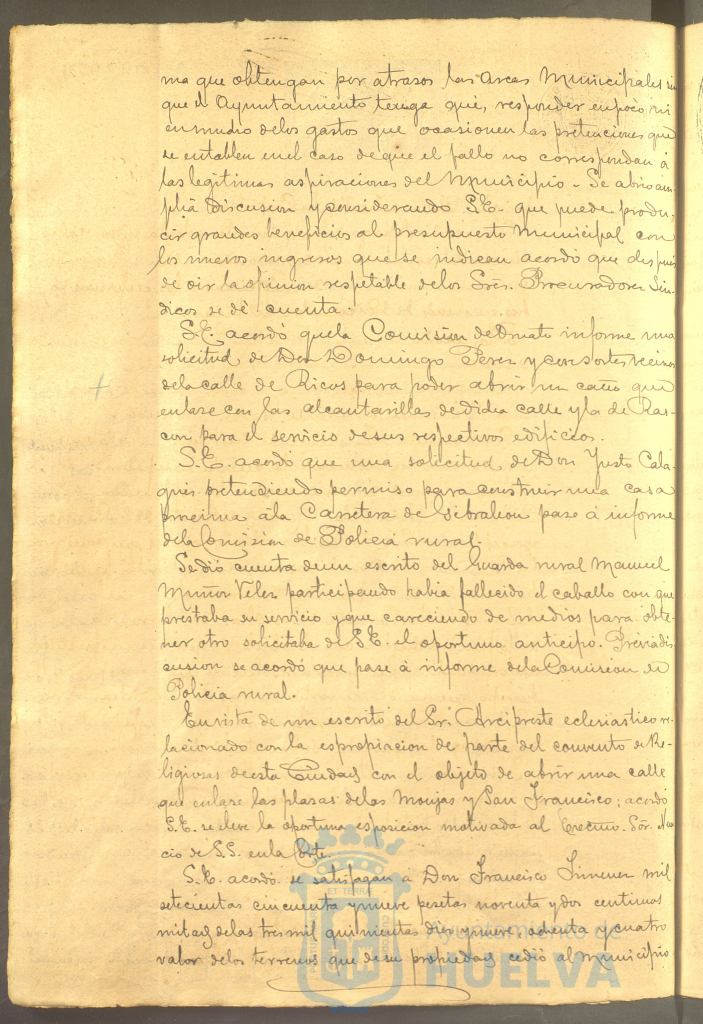 ma que obtengan por atrasos las arcas Municipales sin
que el Ayuntamiento tenga que, responder en poco, ni
en mucho de los gastos que ocasionen las pretenciones que
se entablen en el caso de que el fallo no correspondan á
las legitimas aspiraciones del Municipio. Se abrio am-
plia discusion y considerando S.E. que puede produ-
cir grandes beneficios al presupuesto Municipal con
los nuevos ingresos que se indican acordó que despues
de oir la opinion respetable de los Sres. Procuradores Sin-
dicos se dé cuenta.
S.E. acordó que la Comision de Ornato informe una
solicitud de Don Domingo Perez y consortes vecinos
de la calle de Ricos para poder abrir un caño que
enlaze con las alcantarillas de dicha calle y la de Ras-
con para el servicio de sus respectivos edificios.
S.E. acordó que una solicitud de Don Justo Cala-
pretendiendo permiso para construir una casa
procsima á la Carretera de Gibraleon pase á informe
de la Comision de Policia rural.
Se dió cuenta de un escrito del Guarda rural Manuel
Muñoz Velez participando habia fallecido el caballo con que
prestaba su servicio y que careciendo de medios para obte-
ner otro solicitaba de S.E. el oportuno anticipo. Previa dis-
cusion se acordó que pase á informe de la Comision de
Policia rural.
En vista de un escrito del Sr. Arcipreste eclesiastico re-
lacionado con la espropiacion de parte del convento de Re-
ligiosas de esta Ciudad con el objeto de abrir una calle
que enlaze las plazas de las Monjas y San Francisco; acordó
S.E. se eleve la oportuna esposicion motivada al Excmo. Sor. Nun-
cio de S.S. en la Corte.
S.E. acordó se satisfagan á Don Francisco Jimenez mil
setecientas cincuenta y nueve pesetas noventa y dos centimos
mitad de las tres mil quinientas diez y nueve ochenta y cuatro
valor de los terrenos que de su propiedad cedió al Municipio
Ayuntamiento de
HUELVA